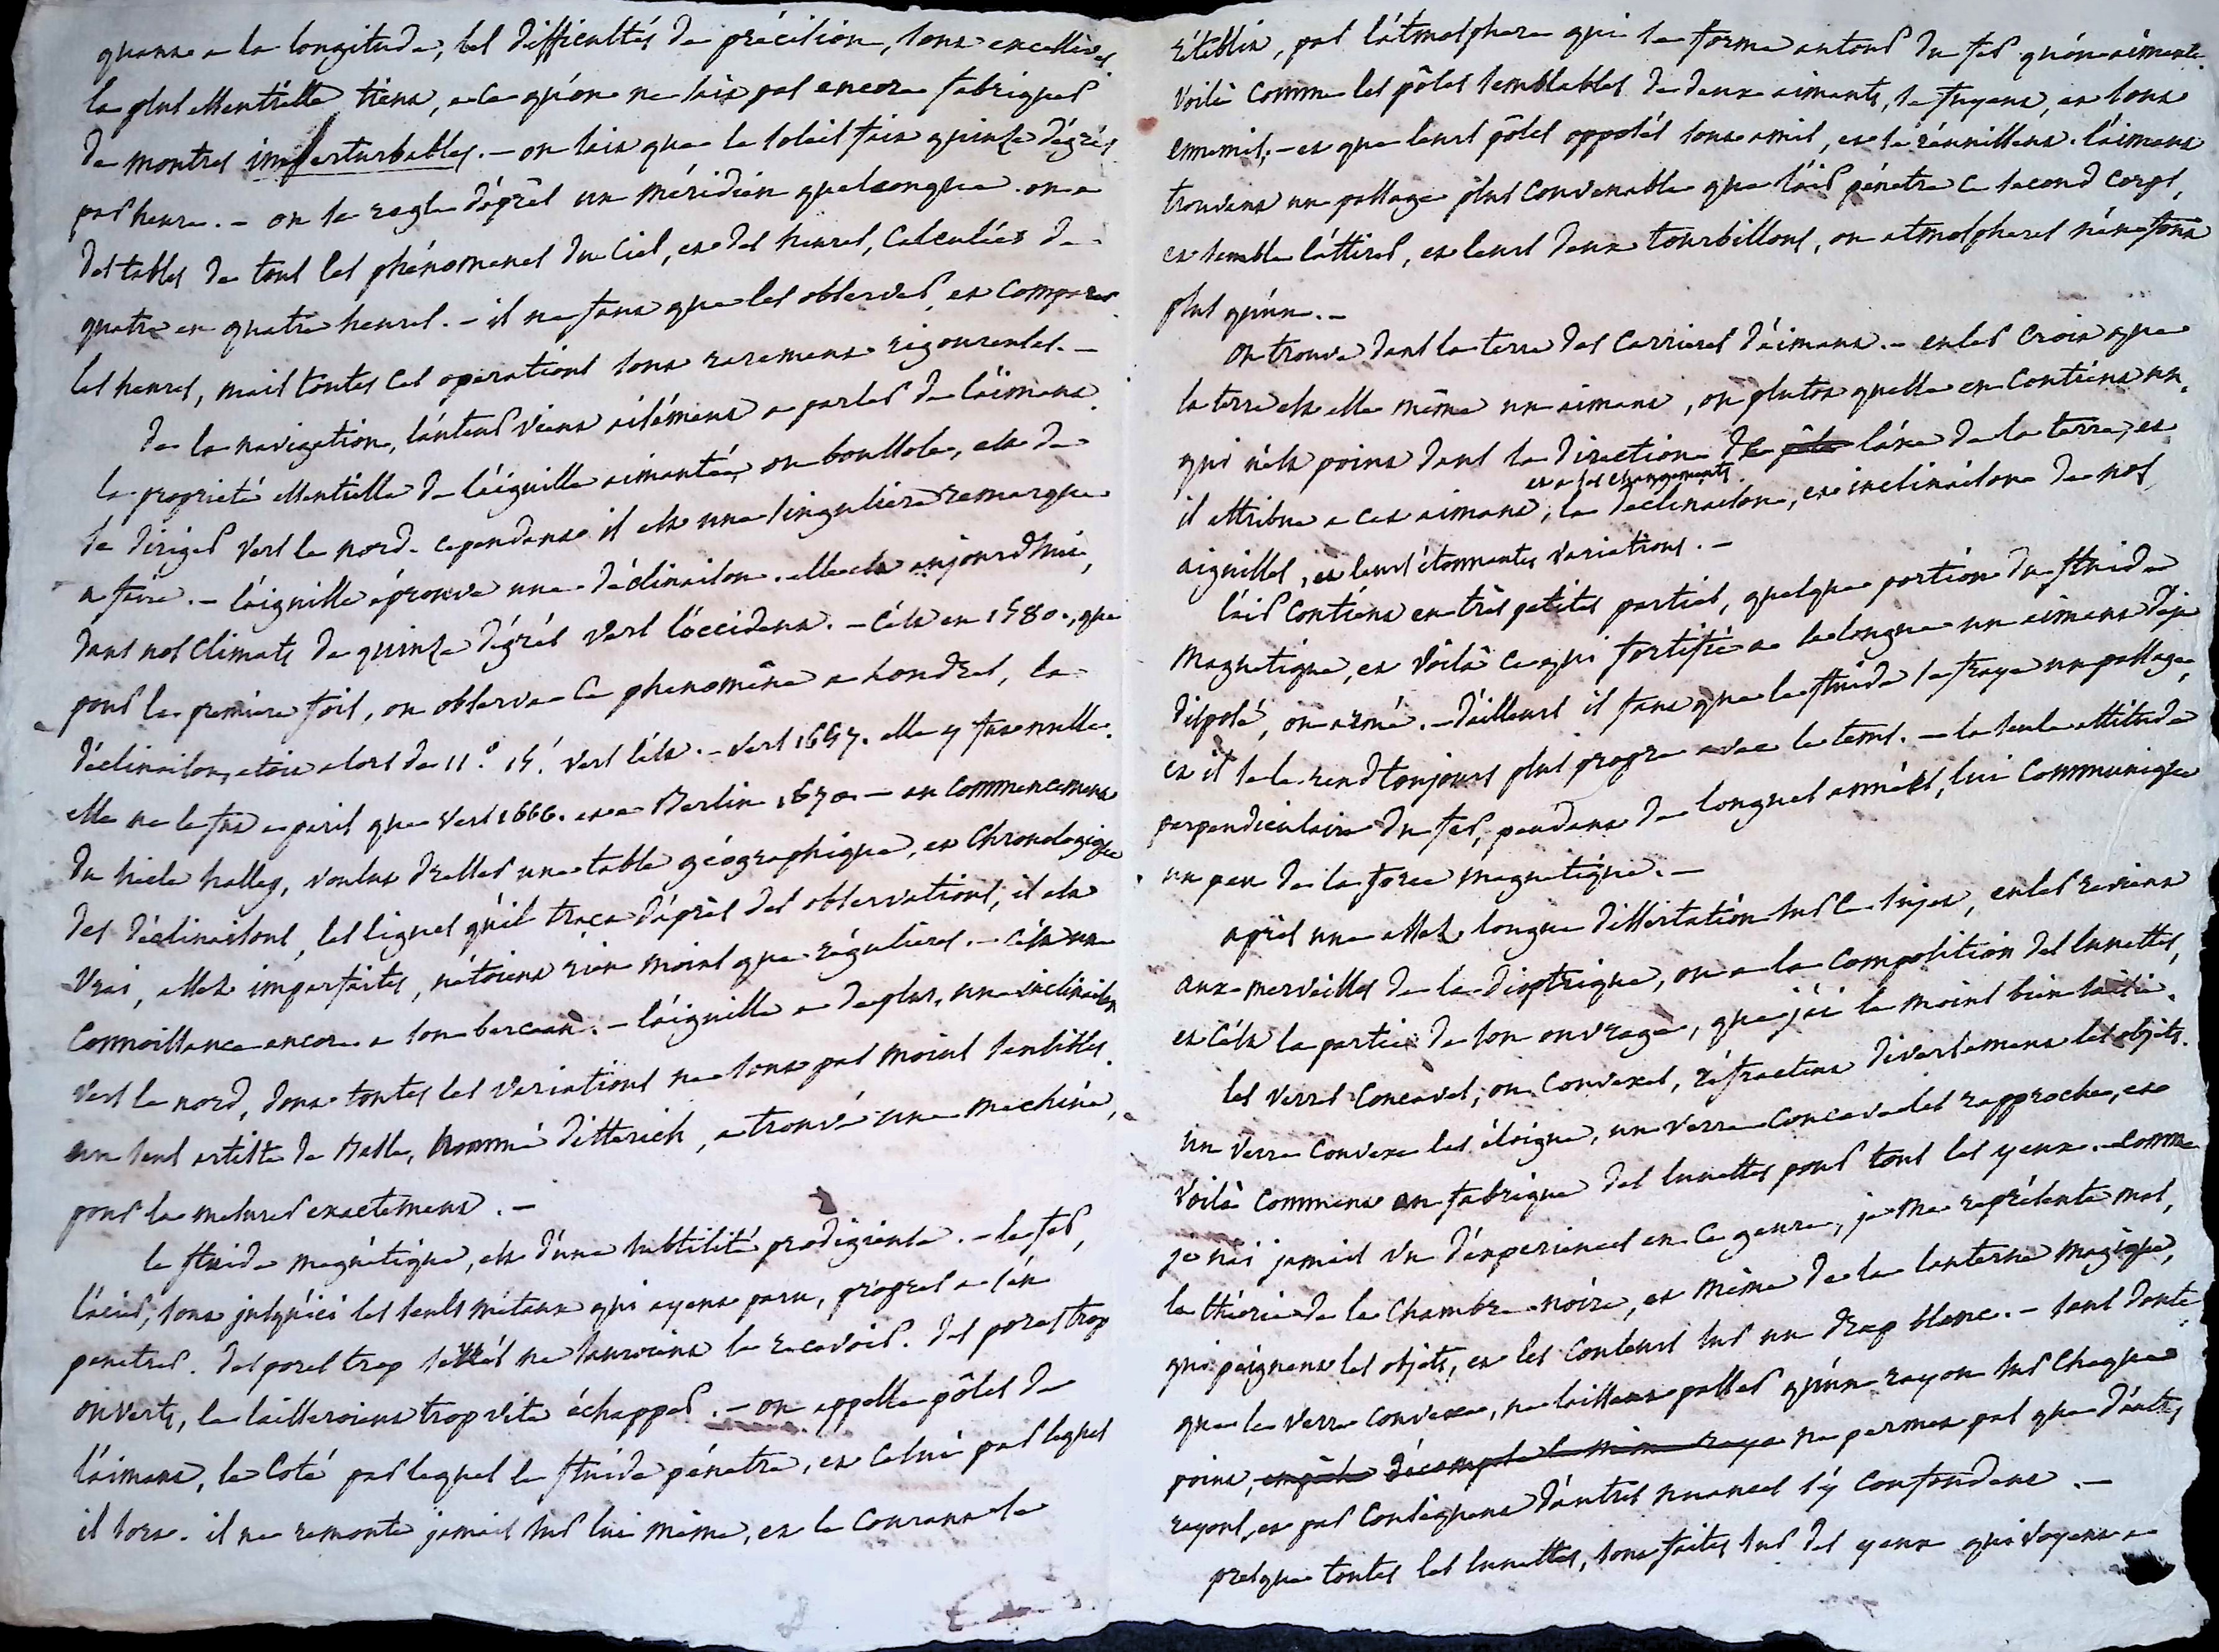 quant a la longitude, les difficultés de précision, sont excessives.
la plus essentielle tient, a ce qu'on ne sait pas encore fabriquer
de montres imperturbables. – on sait que le soleil fait quinze dégrés
par heure. – on se regle d'après un méridien quelconque. on a
des tables de tous les phénomenes du Ciel, et des heures, Calculées de
quatre en quatre heures. – il ne faut que les observer, et Comparer
les heures, mais toutes ces operations sont rarement rigoureuses. –
de la navigation, l'auteur vient aisément a parler de l'aimant.
la proprieté essentielle de l'aiguille aimantée, ou boussole, est de
se diriger vers le nord. cependant il est une singuliere remarque
a faire. – l'aiguille éprouve une déclinaison. elle est aujourd'hui,
dans nos Climats de quinze dégrés vers l'occident. – C'est en 1580., que
pour la premiere fois, on observa Ce phenomène a Londres, la
déclinaison, etoit alors de 11.° 15.' vers l'est. – vers 1657. elle y fut nulle.
elle ne le fut a paris que vers 1666. et a Berlin 1670. – au Commencement
du siecle halley, voulut dresser une table géographique, et Chronologique
des déclinaisons, les lignes qu'il traça d'après des observations, il est
vrai, assez imparfaites, n'étoient rien moins que régulieres. – C'est une
Connoissance encore a son berceau. – l'aiguille a de plus, une inclinaison
vers le nord, dont toutes les variations ne sont pas moins sensibles.
un seul artiste de Basle, nommé ditterich, a trouvé une machine,
pour la mesurer exactement. –
le fluide magnétique, est d'une subtilité prodigieuse. – le fer,
l'acier, sont jusqu'ici les seuls métaux qui ayent paru, propres a s'en
penetrer. des pores trop serrés ne sauroient le recevoir. des pores trop
ouverts, le laisseroient trop vite échapper. – on appelle pôles de
l'aimant, le Coté par lequel le fluide pénetre, et Celui par lequel
il sort. il ne remonte jamais sur lui même, et le Courant se
rétablit, par l'atmosphere qui se forme autour du fer qu'on aimante.
Voilà Comme les pôles semblables de deux aimants, se fuyent, et sont
ennemis, – et que leurs pôles opposés sont amis, et se réunissent. l'aimant
trouvant un passage plus Convenable que l'air pénetre Ce second Corps,
et semble l'attirer, et leurs deux tourbillons, ou atmospheres n'en font
plus qu'un. –
on trouve dans la terre des Carrieres d'aimant. – euler Croit que
la terre est elle même un aimant, ou plutot quelle en Contient un,
qui n'est point dans la direction de pôle l'axe de la terre, et
et a ses changements
il attribue a cet aimant, la declinaison, et inclinaison de nos
aiguilles, et leurs étonnantes variations. –
l'air Contient en très petites parties, quelque portion du fluide
magnetique, et voilà ce qui fortifie a la longue un aimant déja
disposé, ou armé. – d'ailleurs il faut que le fluide se fraye un passage,
et il se le rend toujours plus propre avec le tems. – la seule attitude
perpendiculaire du fer, pendant de longues années, lui Communique
un peu de la force magnetique. –
après une assez longue dissertation sur Ce sujet, euler revient
aux merveilles de la dioptrique, ou a la Composition des lunettes,
et C'est la partie de son ouvrage, que j'ai le moins bien saisie.
les verres Concaves, ou Convexes, réfractent diversement les objets.
un verre Convexe les éloigne, un verre Concave les rapproche, et
voilà Comment on fabrique des lunettes pour tous les yeux. – Comme
je n'ai jamais vu d'experiences en Ce genre, je me représente mal,
la théorie de la Chambre noire, et même de la lanterne magique,
qui peignent les objets, et les Couleurs sur un drap blanc. – sans doute
que le verre Convexe, ne laissant passer qu'un rayon sur Chaque
point, empêche décompose le même rayon ne permet pas que d'autres
rayons, et par Conséquent d'autres nuances s'y Confondent. –
presque toutes les lunettes, sont faites sur des yeux qui voyent a